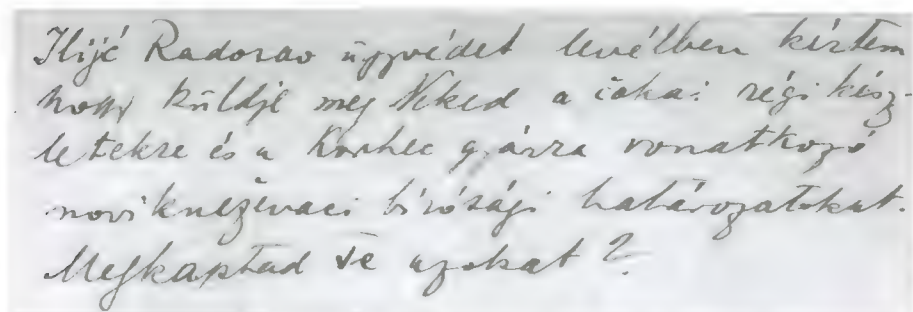 Ilijé Radovav ügyvédet levélben kértem
hogy küldje meg Neked a čokai régi kész-
letekre és a gyárra vonatkozó
novikneževaci bírósági határozatokat.
Megkaptad ‑e azokat?